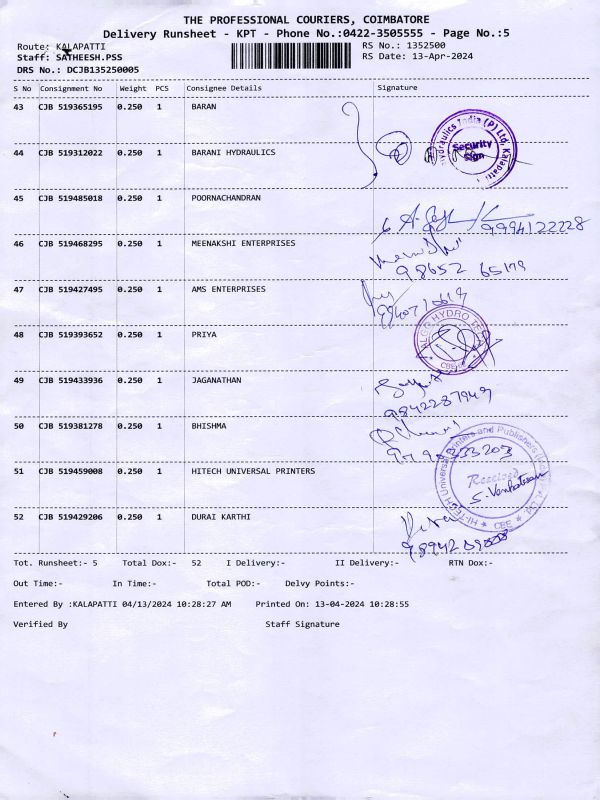 THE PROFESSIONAL COURIERS, COIMBATORE
Delivery Runsheet - KPT - Phone No.:0422-3505555 - Page No.:5
Route: KALAPATTI RS No.: 1352500
Staff: SATHEESH.PSS RS Date: 13-Apr-2024
DRS No.: DCJB135250005
S No Consignment No Weight PCS Consignee Details Signature
43 CJB 519365195 0.250 1 BARAN
Security Sign
44 CJB 519312022 0.250 1 BARANI HYDRAULICS
45 CJB 519485018 0.250 1 POORNACHANDRAN
9994122228
46 CJB 519468295 0.250 1 MEENAKSHI ENTERPRISES
47 CJB 519427495 0.250 1 AMS ENTERPRISES
48 CJB 519393652 0.250 1 PRIYA
49 CJB 519433936 0.250 1 JAGANATHAN
9842287949
50 CJB 519381278 0.250 1 BHISHMA
51 CJB 519459008 0.250 1 HITECH UNIVERSAL PRINTERS
Received
S. Venkatesan
52 CJB 519429206 0.250 1 DURAI KARTHI
Tot. Runsheet:- 5 Total Dox:- 52 I Delivery:- II Delivery:- RTN Dox:-
Out Time:- In Time:- Total POD:- Delvy Points:-
Entered By :KALAPATTI 04/13/2024 10:28:27 AM Printed On: 13-04-2024 10:28:55
Verified By Staff Signature